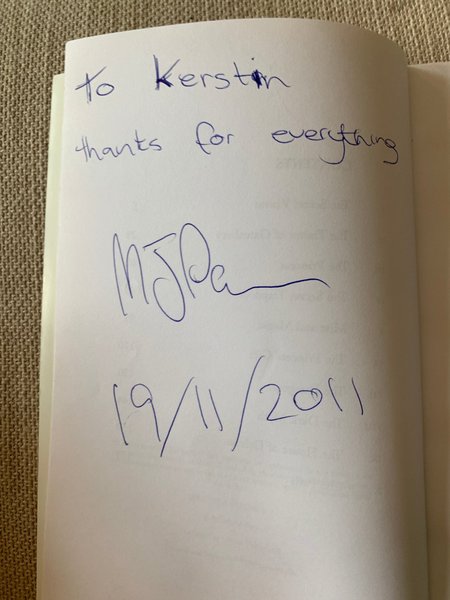 To Kerstin
thanks for everything
19/11/2011